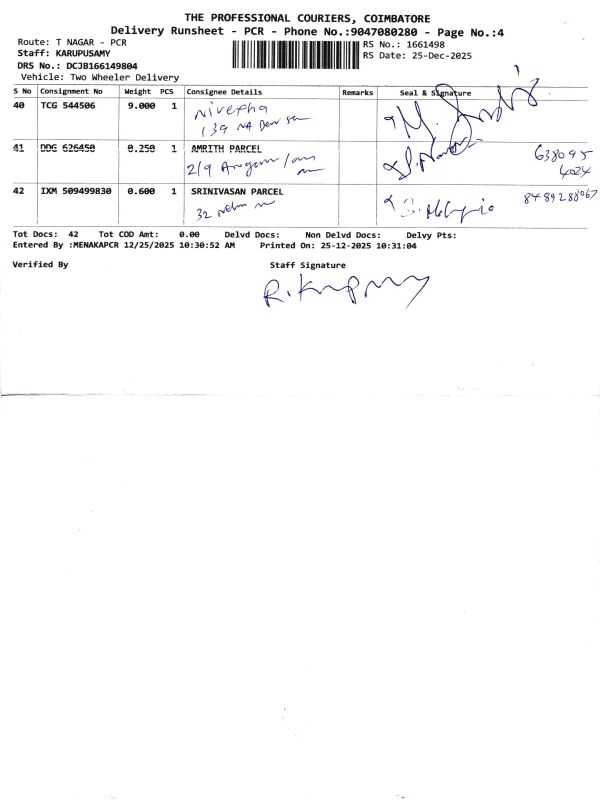 THE PROFESSIONAL COURIERS, COIMBATORE
Delivery Runsheet - PCR - Phone No.:9047080280 - Page No.:4
Route: T NAGAR - PCR
Staff: KARUPUSAMY
DRS No.: DCJB166149804
Vehicle: Two Wheeler Delivery
RS No.: 1661498
RS Date: 25-Dec-2025
S No Consignment No Weight PCS Consignee Details Remarks Seal & Signature
40 TCG 544506 9.000 1 Nivetha
139
41 DDG 626450 0.250 1 AMRITH PARCEL
2/9
638095
4024
42 IXM 509499830 0.600 1 SRINIVASAN PARCEL
32
8489288067
Tot Docs: 42 Tot COD Amt: 0.00 Delvd Docs: Non Delvd Docs: Delvy Pts:
Entered By :MENAKAPCR 12/25/2025 10:30:52 AM Printed On: 25-12-2025 10:31:04
Verified By Staff Signature